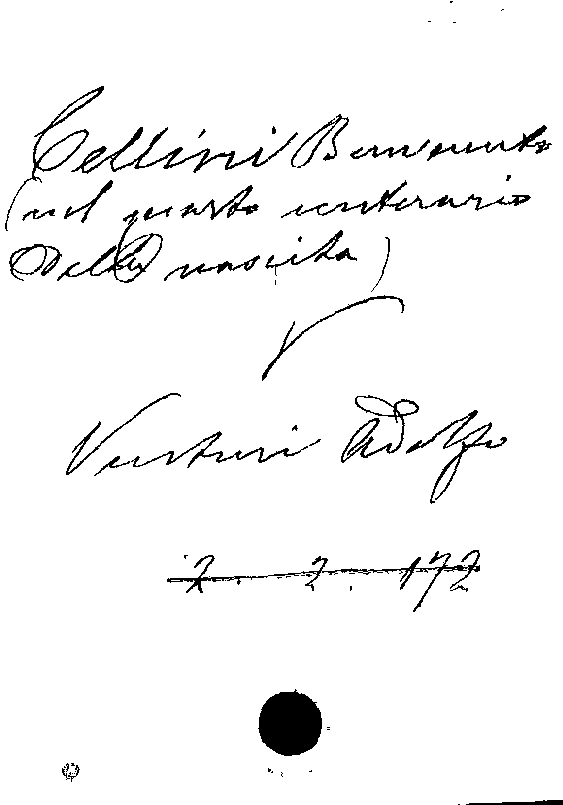 Cellini Benvenuto
(nel quarto centenario
della nascita)
V
Venturi Adolfo
2. 2. 172